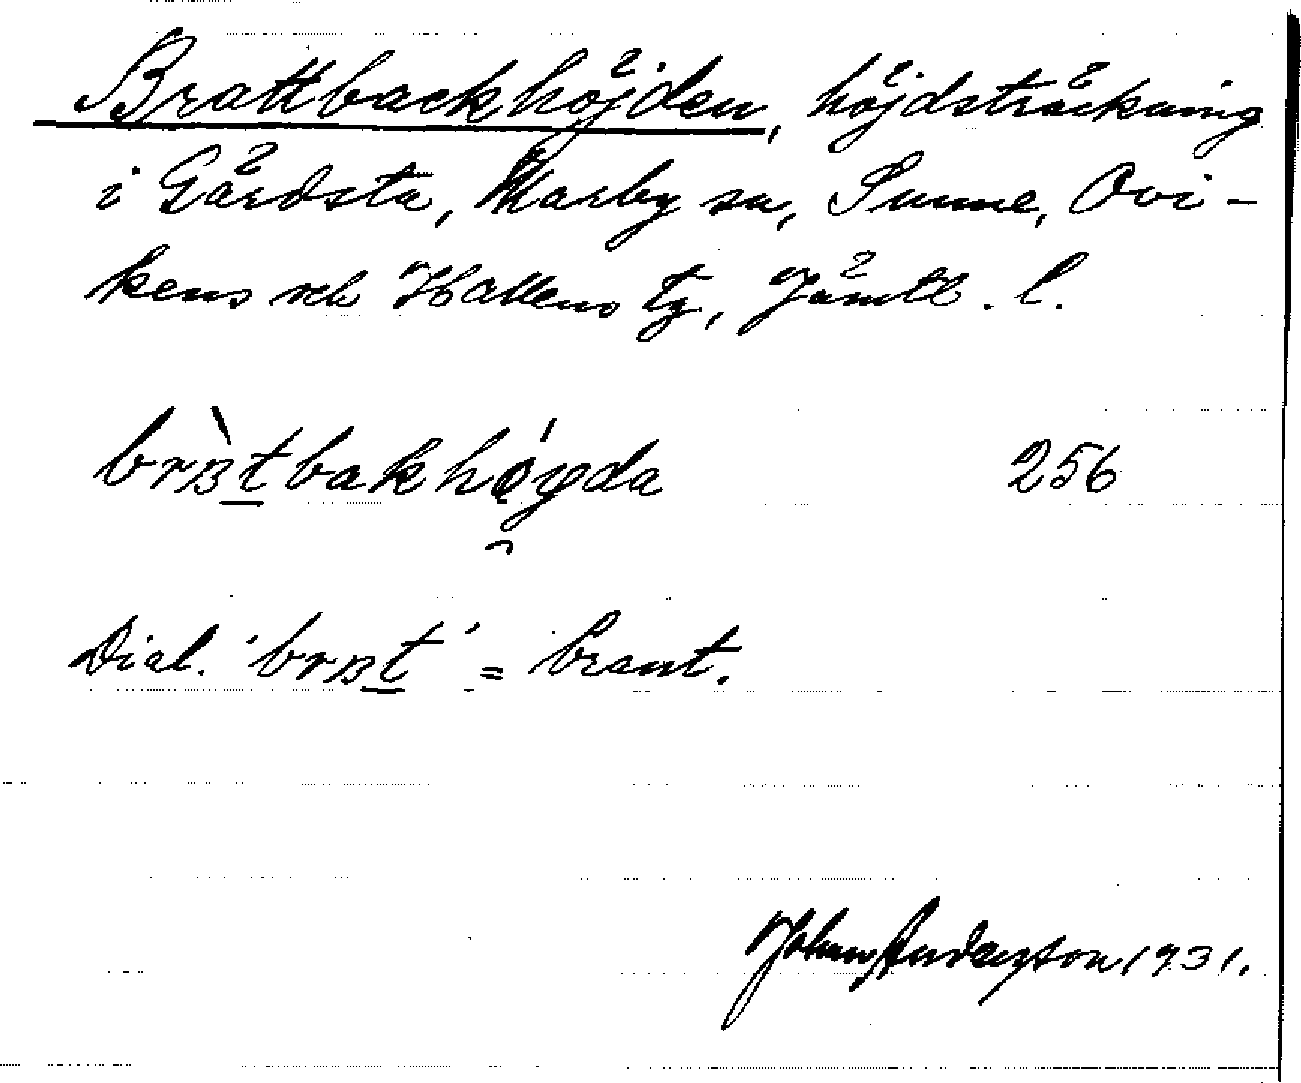 Brattbackhöjden, höjdsträckning
i Gärdsta, Marby sn, Sunne, Ovi-
kens och Hallens tg, Jämtl. l.
brɒ̀tbakhǿyda 256
Dial. 'brɒt' = brant.
Johan Anderzson 1931.